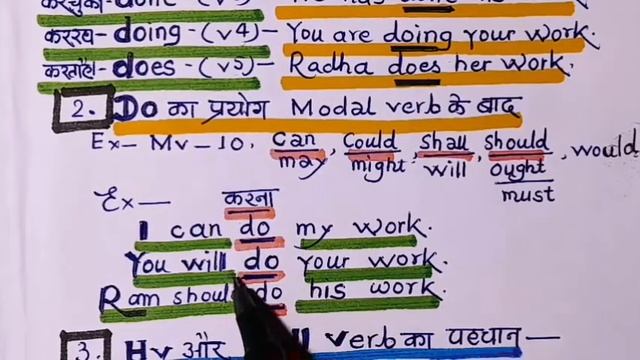 doing - (v4) - You are doing your work.
does - (v5) - Radha does her work.
2. Do का प्रयोग Modal verb के बाद
Ex - Mv - 10. can, could, shall, should, would
may might will ought
must
Ex - करना
I can do my work.
You will do your work.
Ram should do his work.
3. Hv और verb का पहचान -